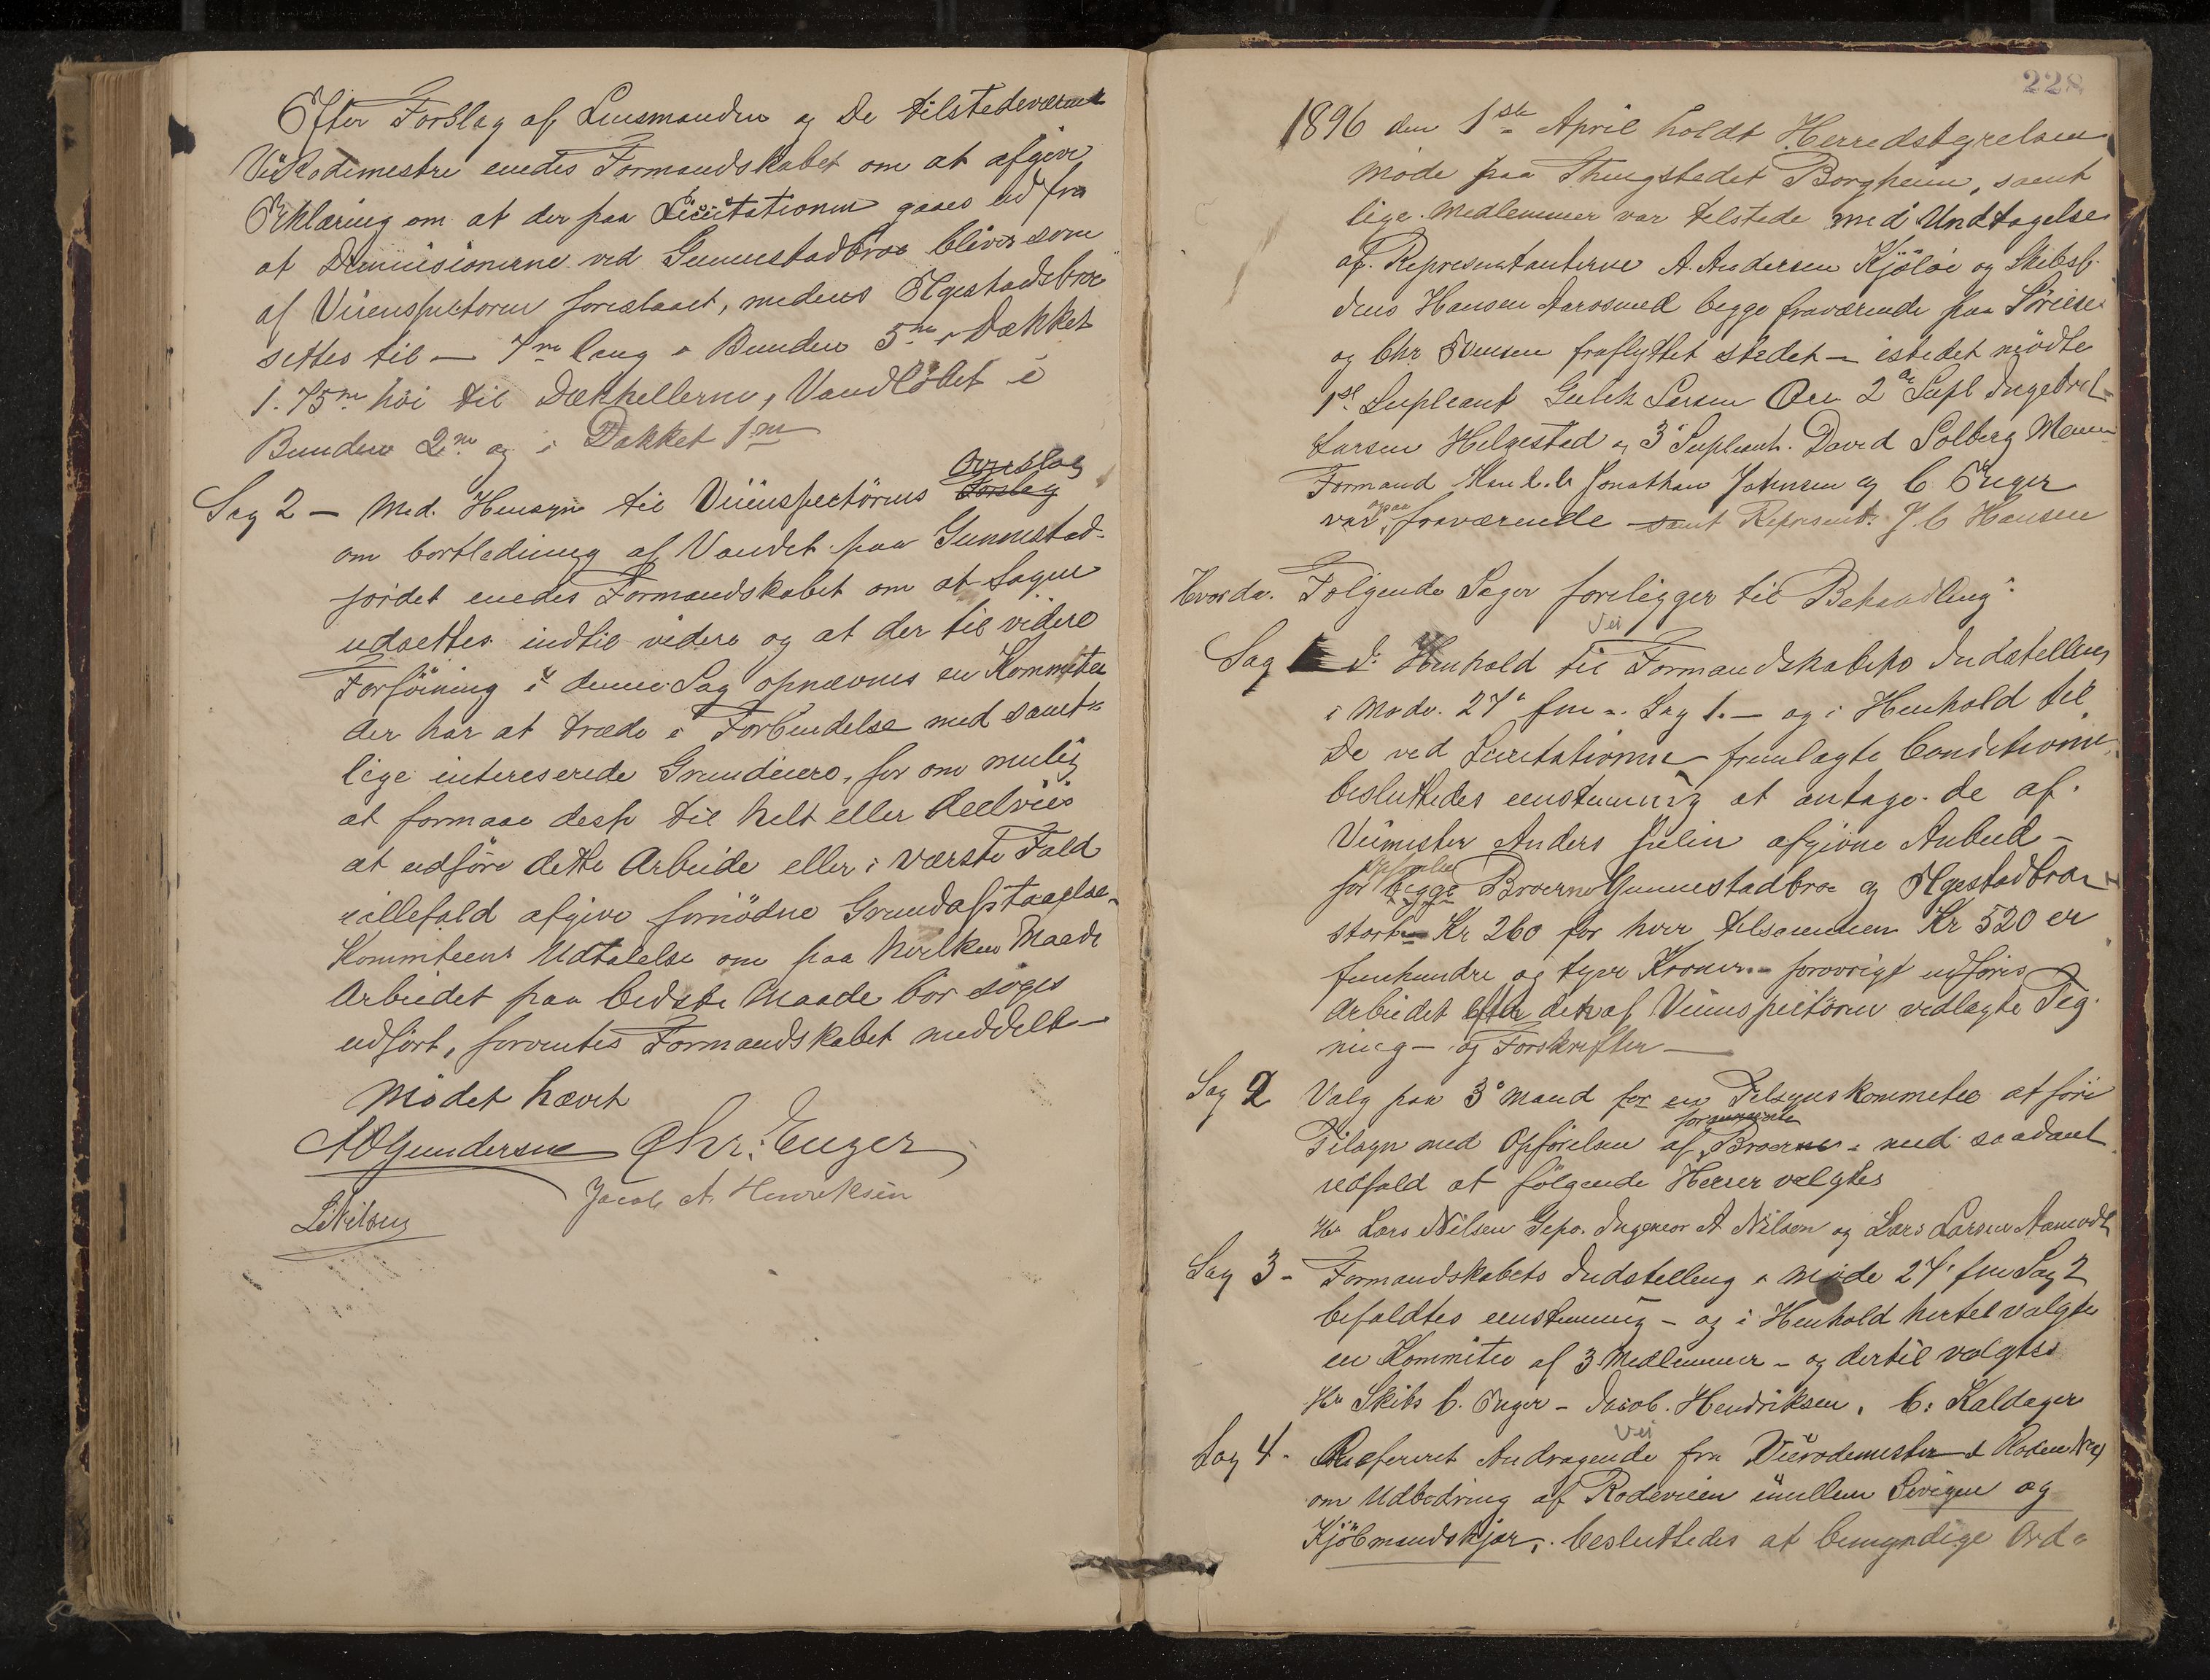 Efter Forslag af Lensmanden og De tilstedeværende
Veirodemestre enedes Formandskabet om at afgive
Erklæring om at der paa Licitationen gaaes ud fra
at Demensionerne ved Gunnestadbroe bliver som
af Veiinspektoren foreslaaet, medens Elgestadbroe
settes til – 7 m lang i Bunden 5 m i Dækket
1.75 m höi til Dækhellerne, Vandlöbet i
Bunden 2 m og i Dækket 1 m
Overslag
Sag 2 – Med Hensyn til Veiinspectörens Forslag
om bortledning af Vandet paa Gunnestad-
jördet enedes Formandskabet om at Sagen
udsettes indtil videre og at der til videre
Forföining i denne Sag opnævnes en Kommitee
der har at træde i Forbindelse med samt-
lige intereserede Grundeiere, for om mulig
at formaae desse til helt eller deelviis
at udföre dette Arbeide eller i værste Fald
iallefald afgive fornödne Grundafstaaelse.
Kommiteens Udtalelse om paa hvilken Maade
Arbeidet paa bedste Maade bör söges
udfört, forventes Formandskabet meddelt –
Mödet hævet
A O Gundersen Chr. Enger
Jacob A. Henriksen
L Nilsen
228
1896 den 1ste April holdt Herredstyrelsen
möde paa Thingstedet Borgheim, samt
lige Medlemmer var tilstede med Undtagelse
af Representanterne A. Andersen Kjölöe og Skibsf.
Jens Hansen Aarosund begge fraværende paa Söreise
og Chr. Svensen fraflyttet stedet – istedet mödte
1st Supleant Larsen 2de Supl Ingebret
Larsen Helgestad og 3 Supleant. David Solberg
Formand Jonathan Johnsen og C Enger
ogsaa
var fraværende – samt Represent. J. C Hansen
Hvorda. Fölgende Sager foreligger til Behandling:
Vei
Sag 1 I Henhold til Formandskabets Indstilling
i Möde 27 fm – Sag 1. – og i Henhold til
De ved Licitationen fremlagte Conditioner,
besluttedes eenstemmig at antage de af
Veimester Anders Julin afgivne Anbud –
Opförelse
for begge Broerne Gunnestadbroe og Elgestadbroe
stort – Kr 260 for hver tilsammen Kr 520 er
femhundre og tyve Kroner. – forövrigt udföres
Arbeidet efter den af Veiinspectören vedlagte Teg-
ning – og Forskrifter –
Sag 2 Valg paa 3 Mand for en Tilsynskommitee at före
fornævnte
Tilsyn med Opförelsen af Broerne – med saadant
udfald at fölgende Herrer valgtes
Hr Lars Nilsen Gipö. Ingeneor A. Nilsen og Lars Larsen Aamodt
Sag 3 – Formandskabets Indstilling i Möde 27 fm Sag 2
bifaldtes eenstemmig – og i Henhold hertil valgtes
en Kommitee af 3 Medlemmer – og dertil valgtes
Hr Skibs C. Enger – Jacob. Hendriksen, C. Kaldager
Vei
Sag 4 – Refereret Andragende fra Veirodemester i Roden
om Udbedring af Rodeveien imellem Sevigen og
Kjöbmandskjær, besluttedes at bemyndige Ord-